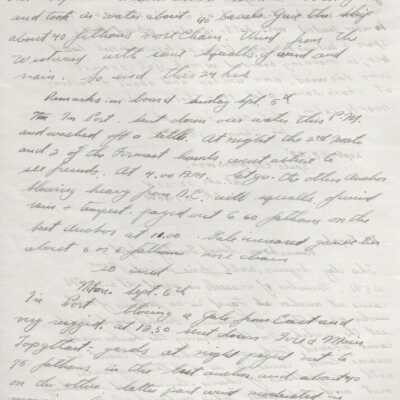 and took in water about 40 barrels. Gave the ship
about 40 fathoms more Chain. Wind from the
Westward with some squalls of wind and
rain. So end this 24 hrs
Remarks on board Sunday Sept. 5th
In Port. sent down over water this P.M.
and washed off a little. At night the 2nd Mate
and 2 of the Formast hands went ashore to
see friends. At 4.00 A.M. let go the other Anchor
blowing heavy from with squalls of wind
rain + tempest. payed out to 60 fathoms on the
best Anchor at 10.00. Gale increased gave her
about 6 or 8 fathoms more chain
so ends
Mon. Sept. 6th
In Port blowing a gale from East and
very rugged. at 12.30 sent down Fore & Main
Topgallant yards at night payed out to
75 fathoms in the best anchor and about 40
on the other. latter part wind moderated in